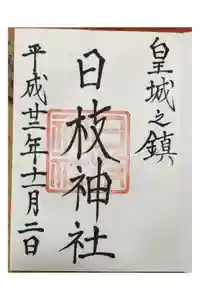 皇城之鎮
日枝神社
平成廿三年十一月二日